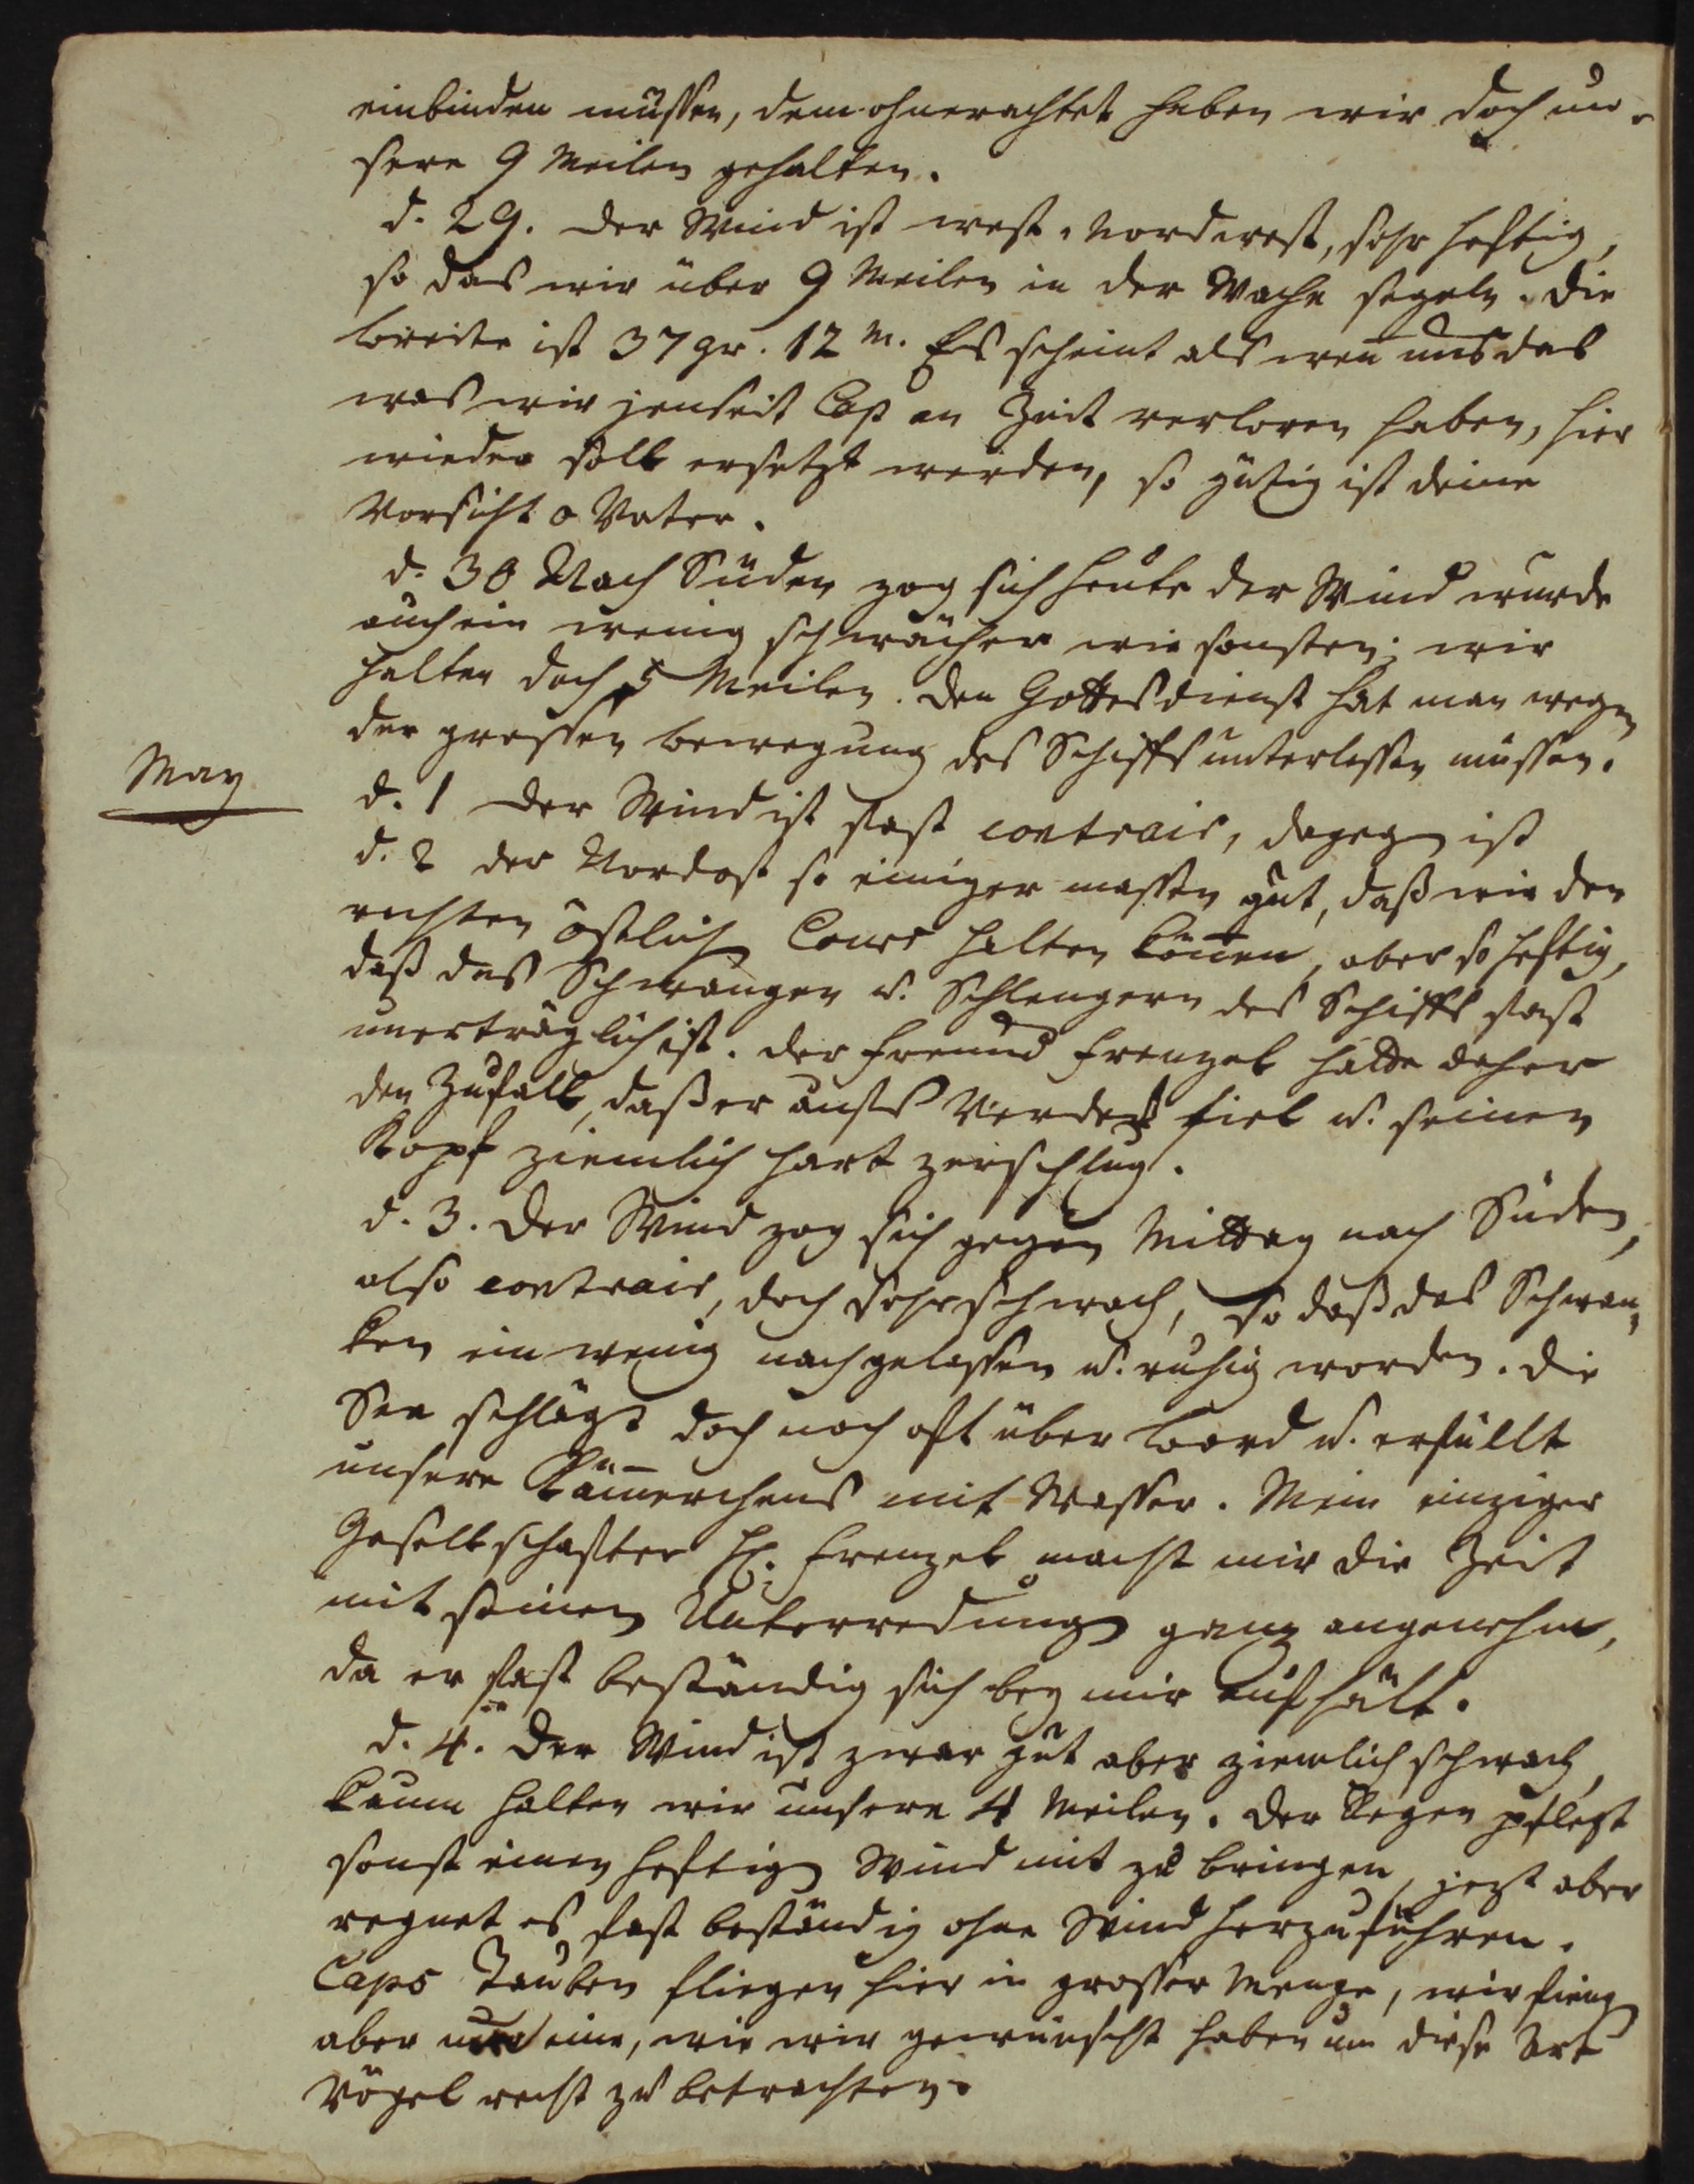 einbinden müssen, dem ohnerachtet haben wir doch un-
sere 9 Meilen gehalten.
d. 29. Der Wind ist west-nordwest, sehr heftig,
so das wir über 9 Meilen in der Wache segeln. Die
breite ist 37 gr. 12 m. Es scheint als wen̄ uns das
was wir jenseit Cap an Zeit verloren haben, hier
wieder soll ersetzt werden, so gütig ist deine
Vorsicht o Vater.
d. 30 Nach Süden zog sich heute der Wind wurde
auch ein wenig schwächer wie sonsten; wir
halten doch 5 Meilen. Den Gottesdienst hat man wegen
der grossen bewegung des Schiffs unterlassen müssen.
May
d. 1 Der Wind ist fast contrair, dagegen ist
d. 2 der Nordost so einiger massen gut, daß wir den
rechten östlich Cours halten kön̄en, aber so heftig,
daß das Schwangen u. Schlengern des Schiffs fast
unerträglich ist. Der Freund Frenzel hatte daher
den Zufall, daß er aufs Verdeck fiel u. seinen
Kopf ziemlich hart zerschlug.
d. 3. Der Wind zog sich gegen Mittag nach Süden,
also contrair, doch sehr schwach, so daß das Schwan-
ken ein wenig nachgelassen u. ruhig worden. Die
See schlägt doch noch oft über Boord u. erfüllt
unsere Käm̄erchens mit Wasser. Mein einziger
Gesellschafter H. Frenzel macht mir die Zeit
mit seinen Unterredungen ganz angenehm,
da er fast beständig sich bey mir aufhält.
d. 4. Der Wind ist zwar gut aber ziemlich schwach,
kaum halten wir unsere 4 Meilen. Der Regen pflegt
sonst einen heftigen Wind mit zu bringen, jezt aber
regnet es fast beständig ohne Wind herzuführen.
Caps Tauben fliegen hier in grosser Menge, wir fiengen
aber nur eine, wie wir gewünscht haben um diese Art
Vögel recht zu betrachten.